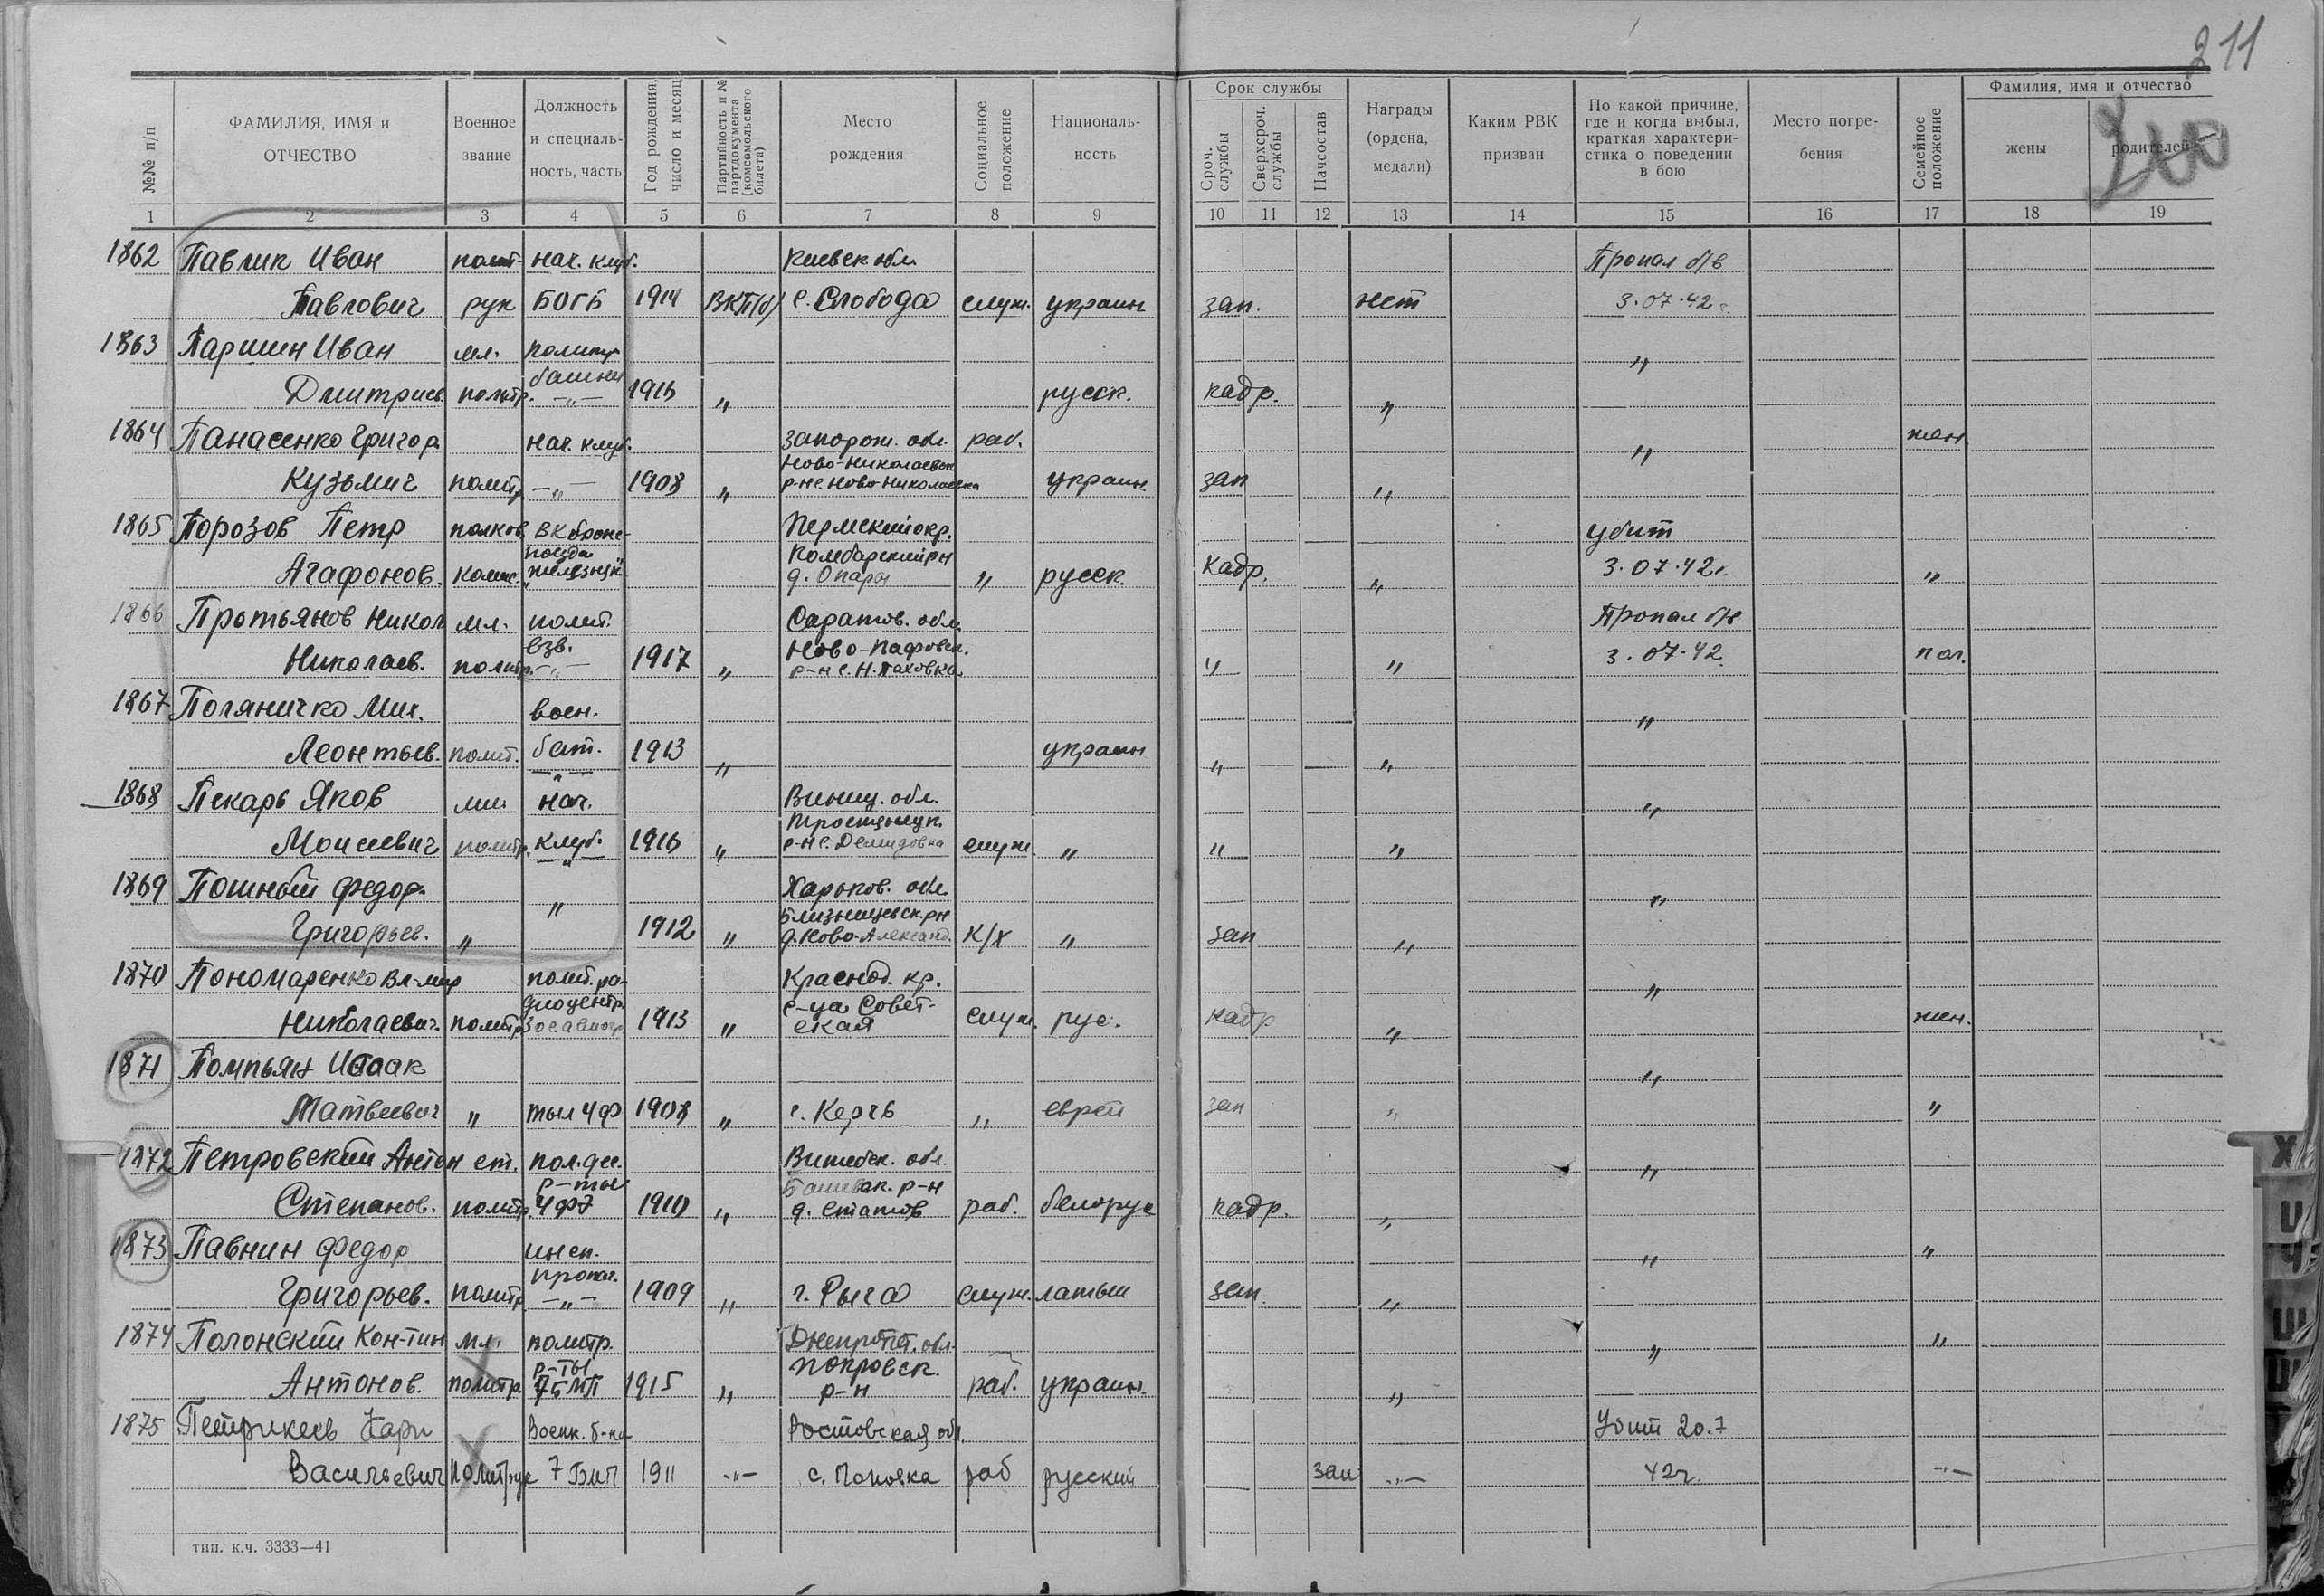 211
200
№№ п/п
ФАМИЛИЯ, ИМЯ и ОТЧЕСТВО
Военное звание
Должность и специальность, часть
Год рождения, число и месяц
Партийность и № партдокумента (комсомольского билета)
Место рождения
Социальное положение
Национальность
Срок службы
Сроч. службы
Сверхсроч. службы
Начсостав
Награды (ордена, медали)
Каким РВК призван
По какой причине, где и когда выбыл, краткая характеристика о поведении в бою
Место погребения
Семейное положение
Фамилия, имя и отчество
жены
родителей
1 2 3 4 5 6 7 8 9 10 11 12 13 14 15 16 17 18 19
1862 Павлик Иван полит- нач. клуб. Киевск обл. Пропал б/в
Павлович рук БОГБ 1914 ВКП(б) с. Слобода служ. украин зап. нет 3.07.42г.
1863 Паршин Иван мл. политр „
Дмитриев. политр. башни —„— 1915 „ русск. кадр. „
1864 Панасенко Григор. нач. клуб. Запорож. обл. раб. „ жен
Ново-Николаевск
Кузьмич политр —„— 1908 „ р-н с. Ново-Николаевка украин. зап „
1865 Порозов Петр полков. ВК броне- Пермский окр. убит
поезда
Агафонов. комис. „Железняк" д. Опары „ русск. Кадр. „ 3.07.42г. „
1866 Протьянов Никол мл. полит. Саратов. обл. Пропал б/в
взв. Ново-
Николаев. политр. —„— 1917 „ р-н с. Н. „ „ 3.07.42 хол.
1867 Поляничко Мих. воен. „
Леонтьев. полит. бат. —„— 1913 „ украин „ „
1868 Пекарь Яков мл. нач. Винниц. обл. „
Тростянецк.
Моисеевич политр. клуб. —„— 1915 „ р-н с. Демидовка служ. „ „ „
1869 Пошный Федор. „ Харьков. обл. „
Близнецовск. р-н
Григорьев. „ 1912 „ д. Ново-Александ. к/х „ зап „
1870 Пономаренко Вл-мир полит. ра- Краснод. кр. „
диоцентр. с-ца Совет-
Николаевич. политр 1913 „ ская служ. рус. кадр „ жен.
1871 Помпьян Исаак „
Матвеевич „ тыл ЧФ 1908 „ г. Керчь „ еврей зап „ „
1872 Петровский Антон ст. пол. дес. Витебск. обл. „
р-ты р-н
Степанов. политр. ЧФ 1910 „ д. Статов раб. белорус кадр. „
1873 Павнин Федор инсп. „ „
пропаг.
Григорьев. политр —„— 1909 „ г. Рига служ. латыш зап. „
1874 Полонский Кон-тин мл. политр. Днепропет. обл. „ „
р-ты Покровск.
Антонов. политр. 7 БМП 1915 „ р-н раб. украин. „
1875 Петрикеев Карп Военк. б-на Ростовская обл. Убит 20.7
Васильевич политрук 7 БМП 1911 —„— с. Поповка раб русский зап —„— 42г. —„—
тип. к.ч. 3333—41